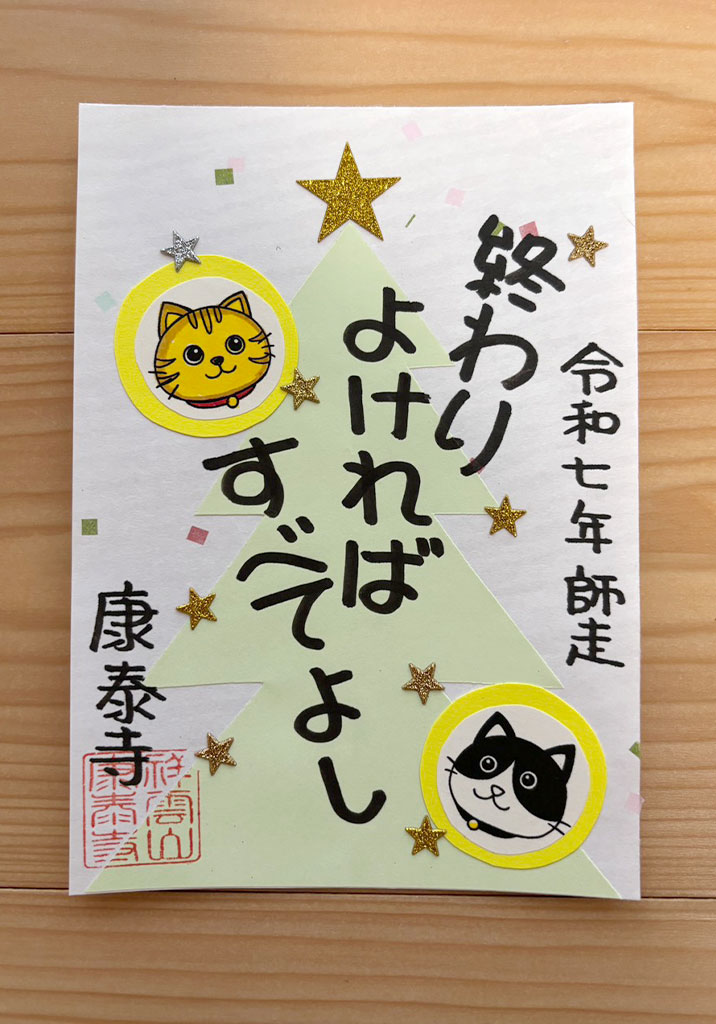 令和七年 師走
終わり
よければ
すべてよし
康泰寺
祥雲山
康泰寺